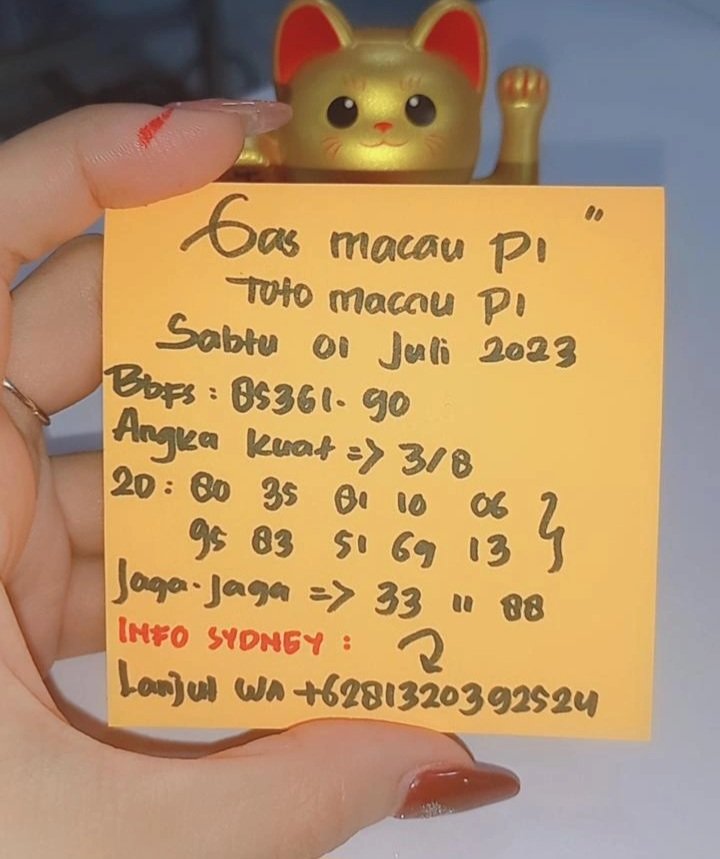 Gas macau P1 "
Toto macau P1
Sabtu 01 Juli 2023
Bbfs : 85361. 90
Angka kuat => 3/8
2D : 80 35 81 10 06 }
95 83 51 69 13
Jaga-Jaga => 33 " 88
INFO SYDNEY :
Lanjut WA +6281320392524